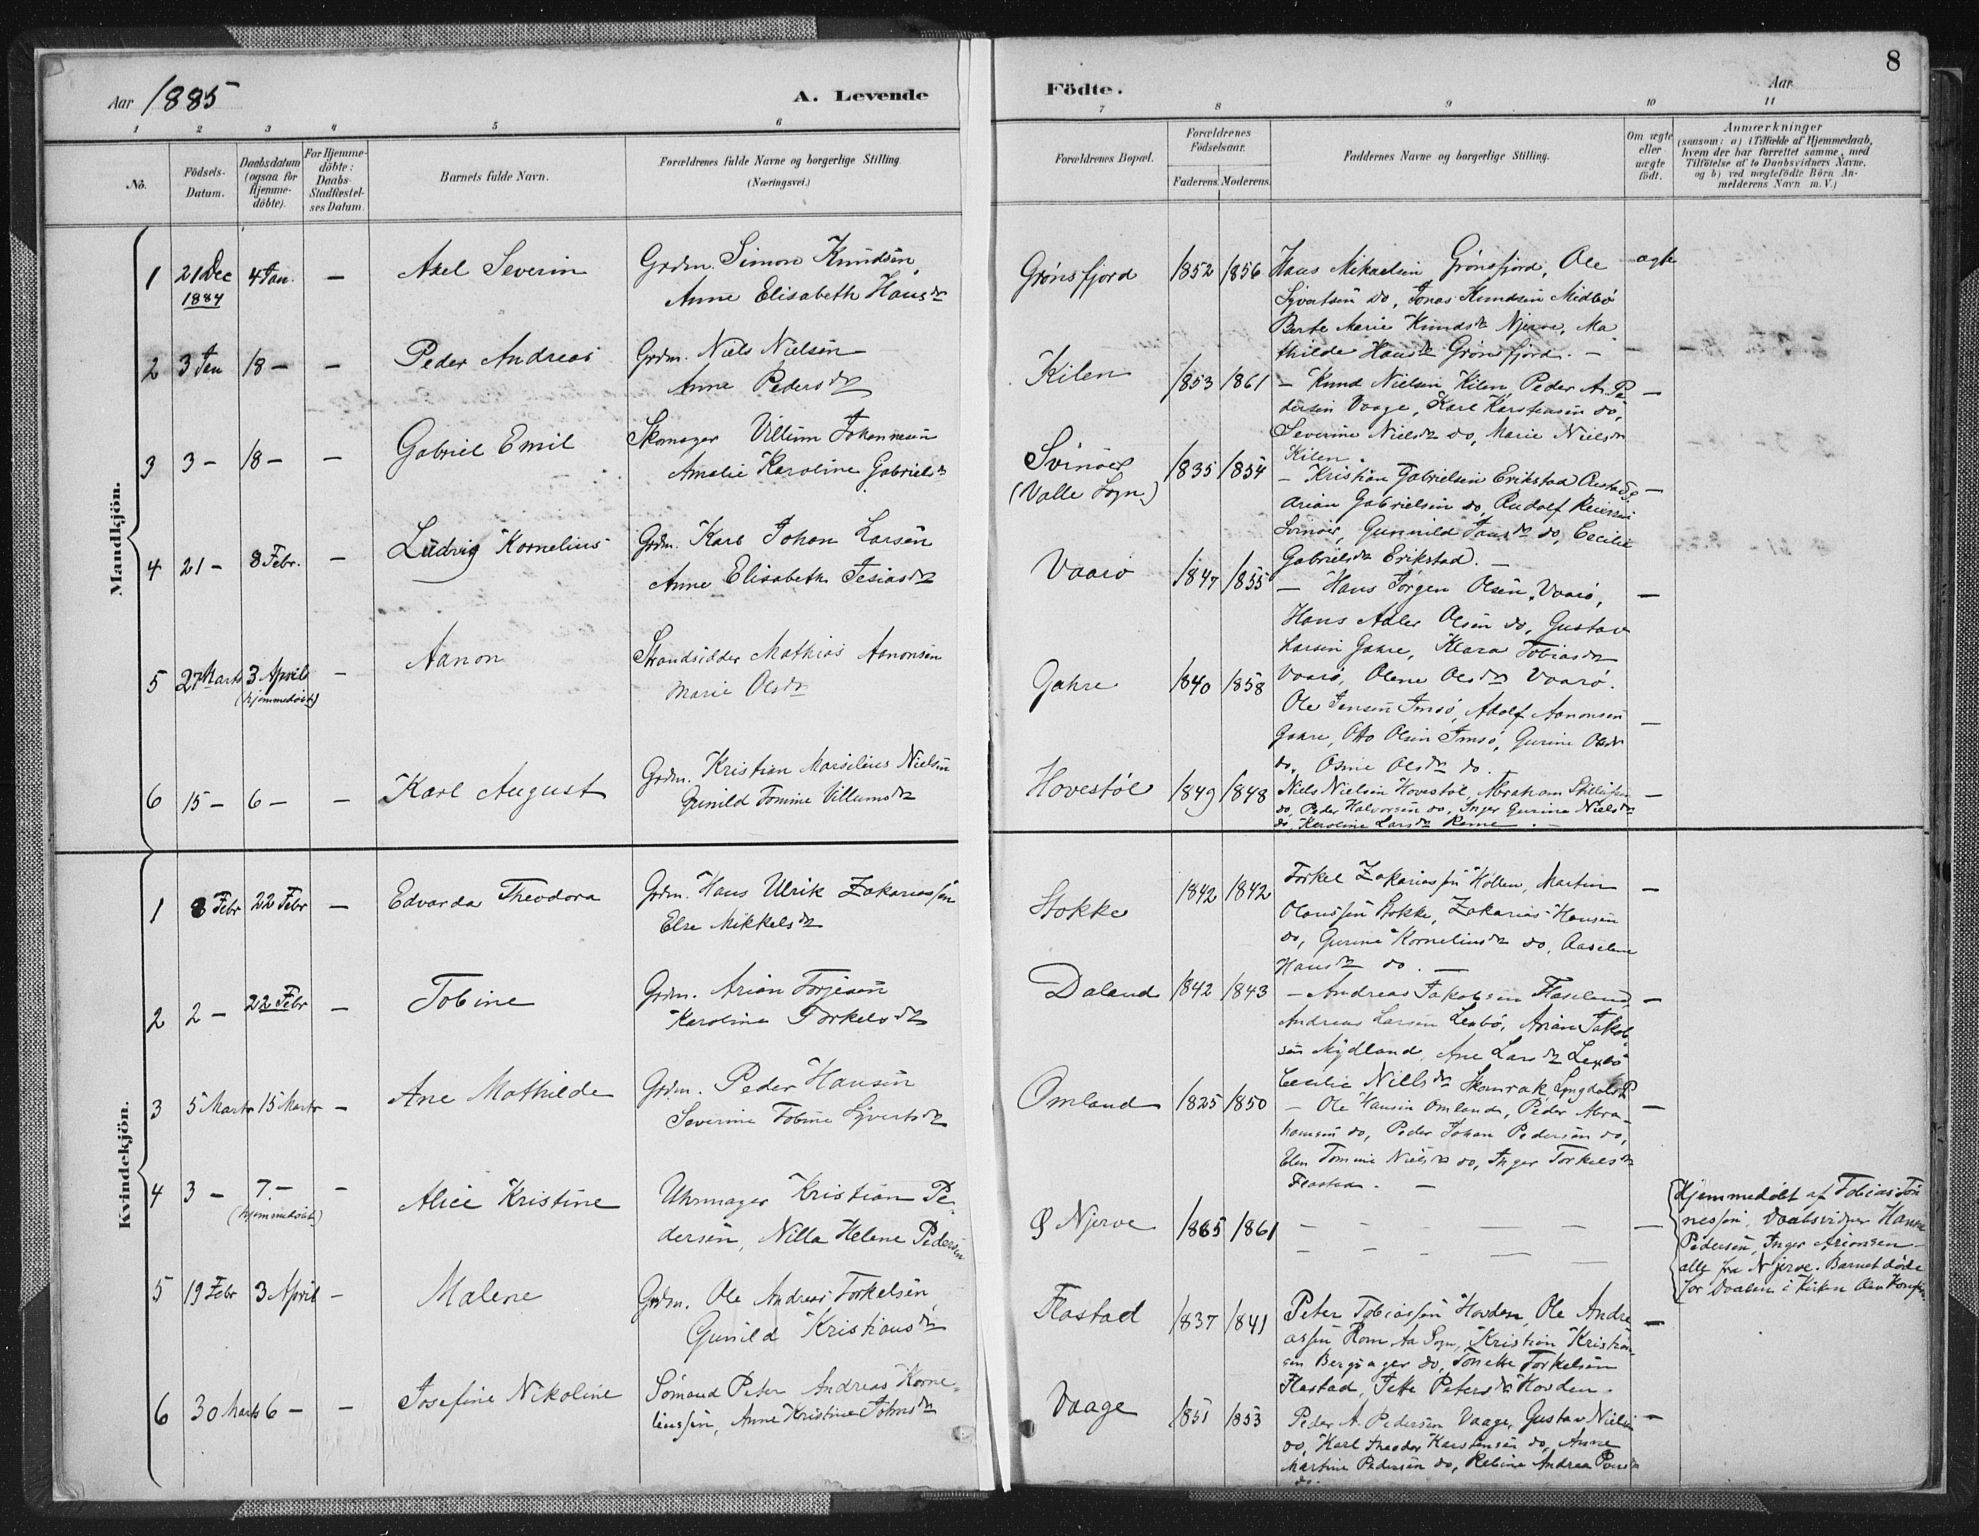 Aar 1885
A. Levende Födte.
Aar
8
1 2 3 4 5 6 7 8 9 10 11
No.
Födsels-Datum.
Daabsdatum (ogsaa for Hjemme-döbte).
For Hjemme-döbte: Daabs-Stadfæstel-ses Datum.
Barnets fulde Navn.
Forældrenes fulde Navne og borgerlige Stilling.
(Næringsvei.)
Forældrenes Bopæl.
Forældrenes Födselsaar.
Faderens. Moderens.
Faddernes Navne og borgerlige Stilling.
Om ægte eller uægte födt.
Anmærkninger
(saasom: a) i Tilfælde af Hjemmedaab,
hvem der har forrettet samme, med
Tilföielse af to Daabsvidners Navne.
og b) ved uægtefödte Börn An-
melderens Navn m. V.)
Mandkjön.
1 21 Dec 1884 4 Jan. — Axel Severin
Grdm. Simon Knudsen
Anne Elisabeth Hansdr
Grønsfjord 1852 1856
Hans Mikaelsen Grønsfjord, Ole
Syvertsen do, Jonas Knudsen Midbø
Berte Marie Knudsdr Njerve, Ma
thilde Hansdr Grønsfjord. —
ægte
2 3 Jan 18 — — Peder Andreas
Grdm. Niels Nielsen
Anne Pedersdr
Kilen 1853 1861
— Knud Nielsen Kilen, Peder A. Pe
dersen Vaage, Karl Karstensen do,
Severine Nielsdr do, Marie Nielsdr
Kilen.
3 3 — 18 — — Gabriel Emil
Skomager Villum Johannesen
Amalie Karoline Gabrielsdr
Svinøer
(Valle Sogn) 1835 1854
— Kristian Gabrielsen Erikstad
Arian Gabrielsen do, Rudolf
Svinøer, Gunnild do, Cecilie
Gabrielsdr Erikstad. —
4 21 — 8 Febr. — Ludvig Kornelius
Grdm. Karl Johan Larsen
Anne Elisabeth Tesiasdr
Vaarø 1847 1855
— Hans Jørgen Olsen, Vaarø,
Hans Adler Olsen do, Gustav
Larsen Gahre, Klara Tobiasdr
Vaarø, Olene Olsdr Vaarø.
5 27 Marts 3 April — (hjemmedøbt) Aanon
Strandsidder Mathias Aanonsen
Marie Olsdr
Gahre 1840 1858
Ole Jensen Imsø, Adolf Aanonsen
Gahre, Otto Olsen Imsø, Gurine Olsdr
do, Olsdr do.
6 15 — 6 — — Karl August
Grdm. Kristian Marselius Nielsen
Gunild Tomine Villumsdr
Hovestøl 1849 1848
Niels Nielsen Hovestøl, Abraham
do, Peder Halvorsen do, Inger Gurine Nielsdr
do, Karoline Larsdr Reme. —
Kvindekjön.
1 8 Febr 22 Febr — Edvarda Theodora
Grdm. Hans Ulrik Zakariassen
Else Mikkelsdr
Stokke 1842 1842
Torkel Zakariassen Holten, Martin
Olaussen Stokke, Zakarias Hansen
do, Gurine Korneliusdr do, Aaselene
Hansdr do. —
2 2 — 22 Febr — Tobine
Grdm. Arian Torjesen
Karoline Torkelsdr
Daland 1842 1843
— Andreas Jakobsen Flaseland,
Andreas Larsen Lexbø, Arian Jakob
sen Nydland, Ane Larsdr Lexbø
Cecilie Nielsdr Skamrak, Lyngdal
3 5 Marts 15 Marts — Ane Mathilde
Grdm. Peder Hansen
Severine Tobine Syvertsdr
Omland 1825 1850
— Ole Hansen Omland, Peder Abra
hamsen do, Peder Johan Pedersen do,
Elen Tomine Nielsdr do, Inger Torkelsdr
Flastad. —
4 3 — 7. — — (hjemmedøbt) Alice Kristine
Uhrmager Kristian Pe-
dersen, Nilla Helene Pedersen
Ø Njerve 1865 1861
Hjemmedøbt af Tobias Tøn
nessen, Daabsvidner Hans
Pedersen, Inger Arionsen
alle fra Njerve. Barnet døde
før Daaben i Kirken
5 19 Febr 3 April — Malene
Grdm. Ole Andreas Torkelsen
Gunild Kristiansdr
Flastad 1837 1841
Peter Tobiassen Hovden, Ole Andre
assen Rom Aa Sogn, Kristian Kristian
sen Bergsager do, Tonette Torkelsen
Flastad, Jette Petersdr Hovden.
6 30 Marts 6 — — Josefine Nikoline
Sømand Peter Andreas Korne-
liussen, Anne Kristine Johnsdr
Vaage 1851 1853
Peder A. Pedersen Vaage, Gustav Nielsen
do, Karl Theodor Karstensen do, Anne
Martine Pedersen do, Andrea
do.